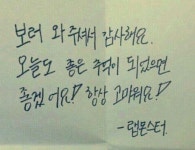 보러 와 주셔서 감사해요.
오늘도 좋은 추억이 되었으면
좋겠어요! 항상 고마워요!
-랩몬스터.